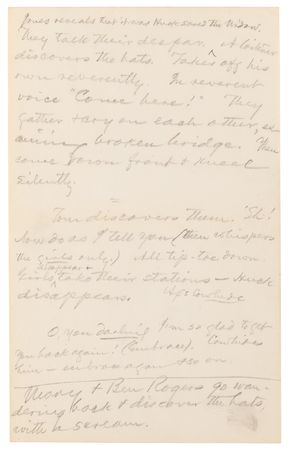 Jones reveals that it was Huck saved the Widow.
They talk their despair. A
discovers the hats. Takes off his
own reverently. In reverent
voice "Come here!" They
gather & cry on each other, ex-
broken bridge. Then
come down front & kneel
silently.
Tom discovers them. 'Sh!
Now do as I tell you (then whispers
the girls only.) All tip-toe down.
Girls disappear & take their stations — Huck
disappears.
O, you darling I'm so glad to get
you back again! (Embrace).
him — embrace again & so on.
Mary & Ben Rogers go wan-
dering back & discover the hats,
with a scream.